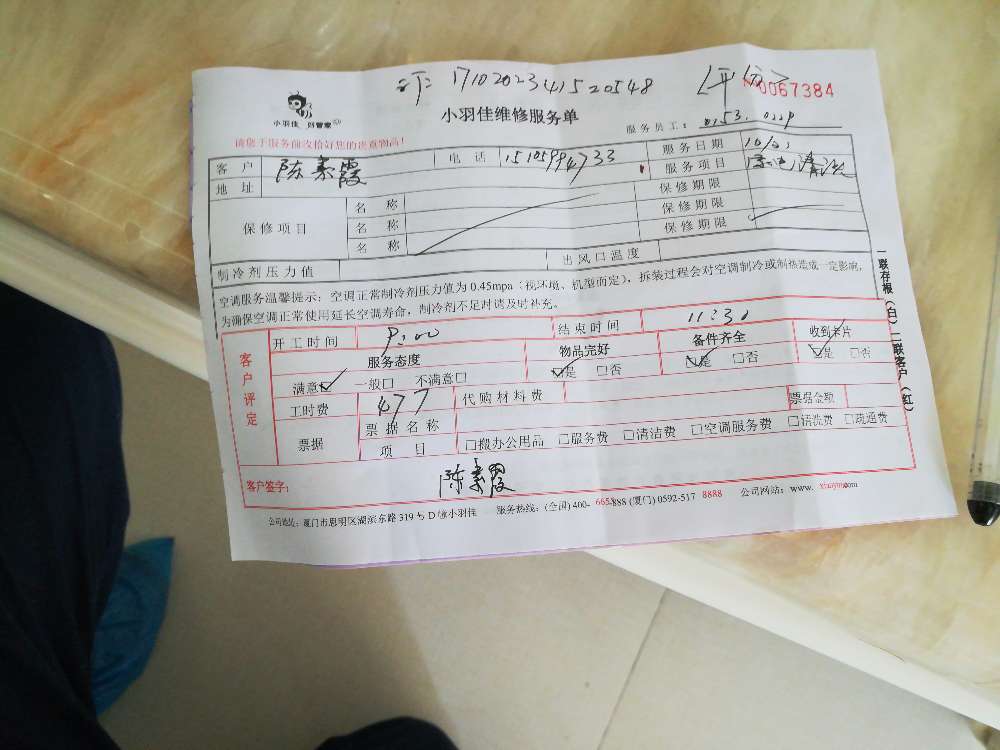 1710202341520548
0067384
小羽佳 刘管家
小羽佳维修服务单
请您于服务前收拾好您的贵重物品!
服务员工: 0753. 0229
客户 陈素霞 电话 15105994733 服务日期
地址 服务项目 清洗
保修项目 名称 保修期限
名称 保修期限
名称 保修期限
制冷剂压力值 出风口温度
空调服务温馨提示:空调正常制冷剂压力值为0.45mpa(视环境、机型而定),拆装过程会对空调制冷或制热造成一定影响,
为确保空调正常使用延长空调寿命,制冷剂不足时请及时补充。
客户评定
开工时间 结束时间 11:30
服务态度 物品完好 备件齐全 收到卡片
满意☑ 一般□ 不满意□ ☑是 □否 ☑是 □否 ☑是 □否
工时费 477 代购材料费 票据金额
票据 票据名称
项目 □搬办公用品 □服务费 □清洁费 □空调服务费 □清洗费 □疏通费
客户签字: 陈素霞
公司地址:厦门市思明区湖滨东路319号D 小羽佳 服务热线:(全国)400-6658888 (厦门)0592-517 8888 公司网站:www. xiaoyujia.com
一联存根(白)二联客户(红)